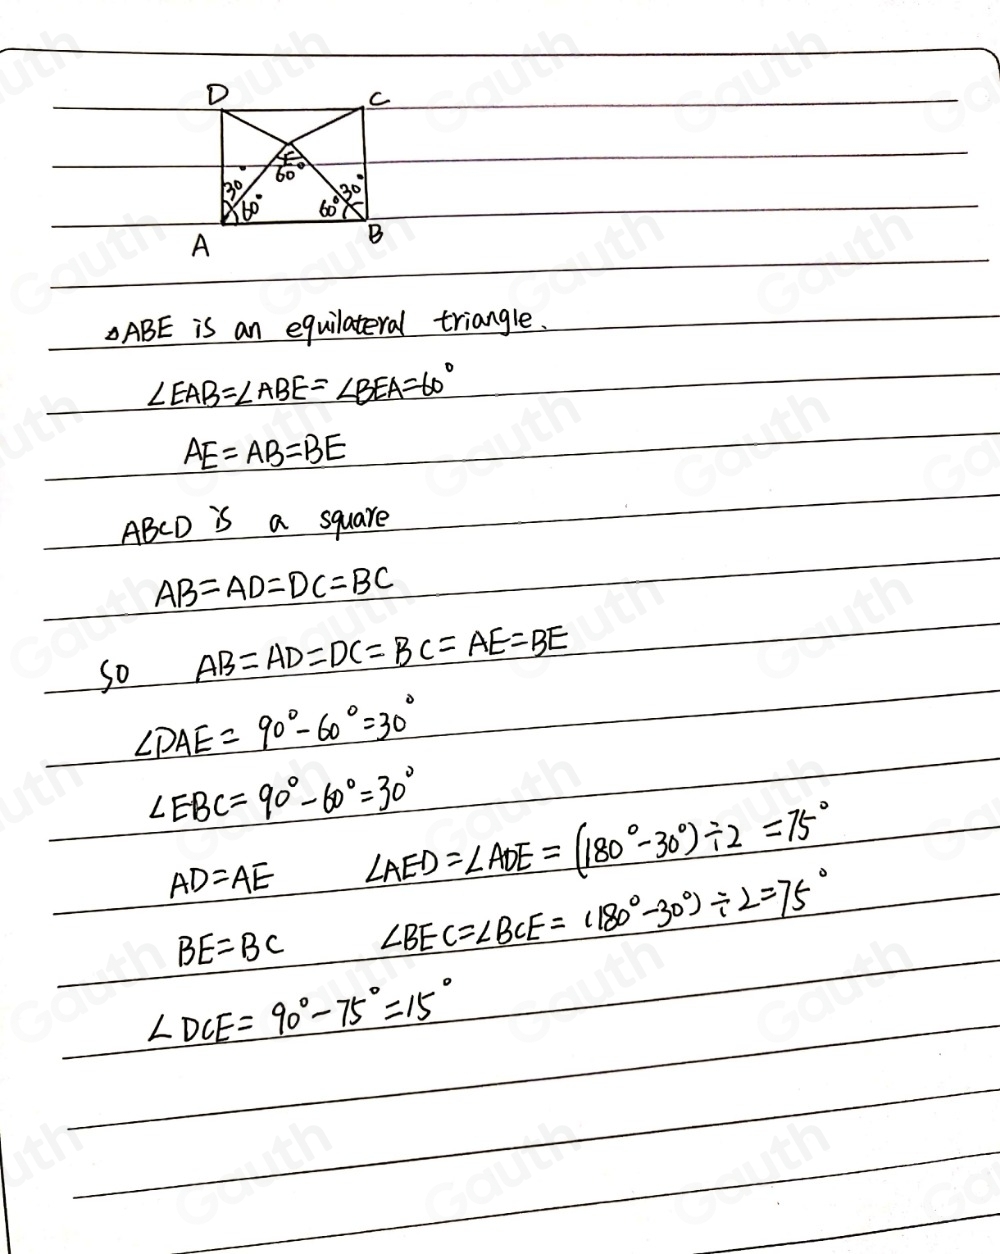 D C
30° E 30°
60°
60° 60°
A B
△ABE is an equilateral triangle.
∠EAB=∠ABE=∠BEA=60°
AE=AB=BE
ABCD is a square
AB=AD=DC=BC
So AB=AD=DC=BC=AE=BE
∠DAE=90°-60°=30°
∠EBC=90°-60°=30°
AD=AE ∠AED=∠ADE=(180°-30°)÷2=75°
BE=BC ∠BEC=∠BCE=(180°-30°)÷2=75°
∠DCE=90°-75°=15°
Gauth